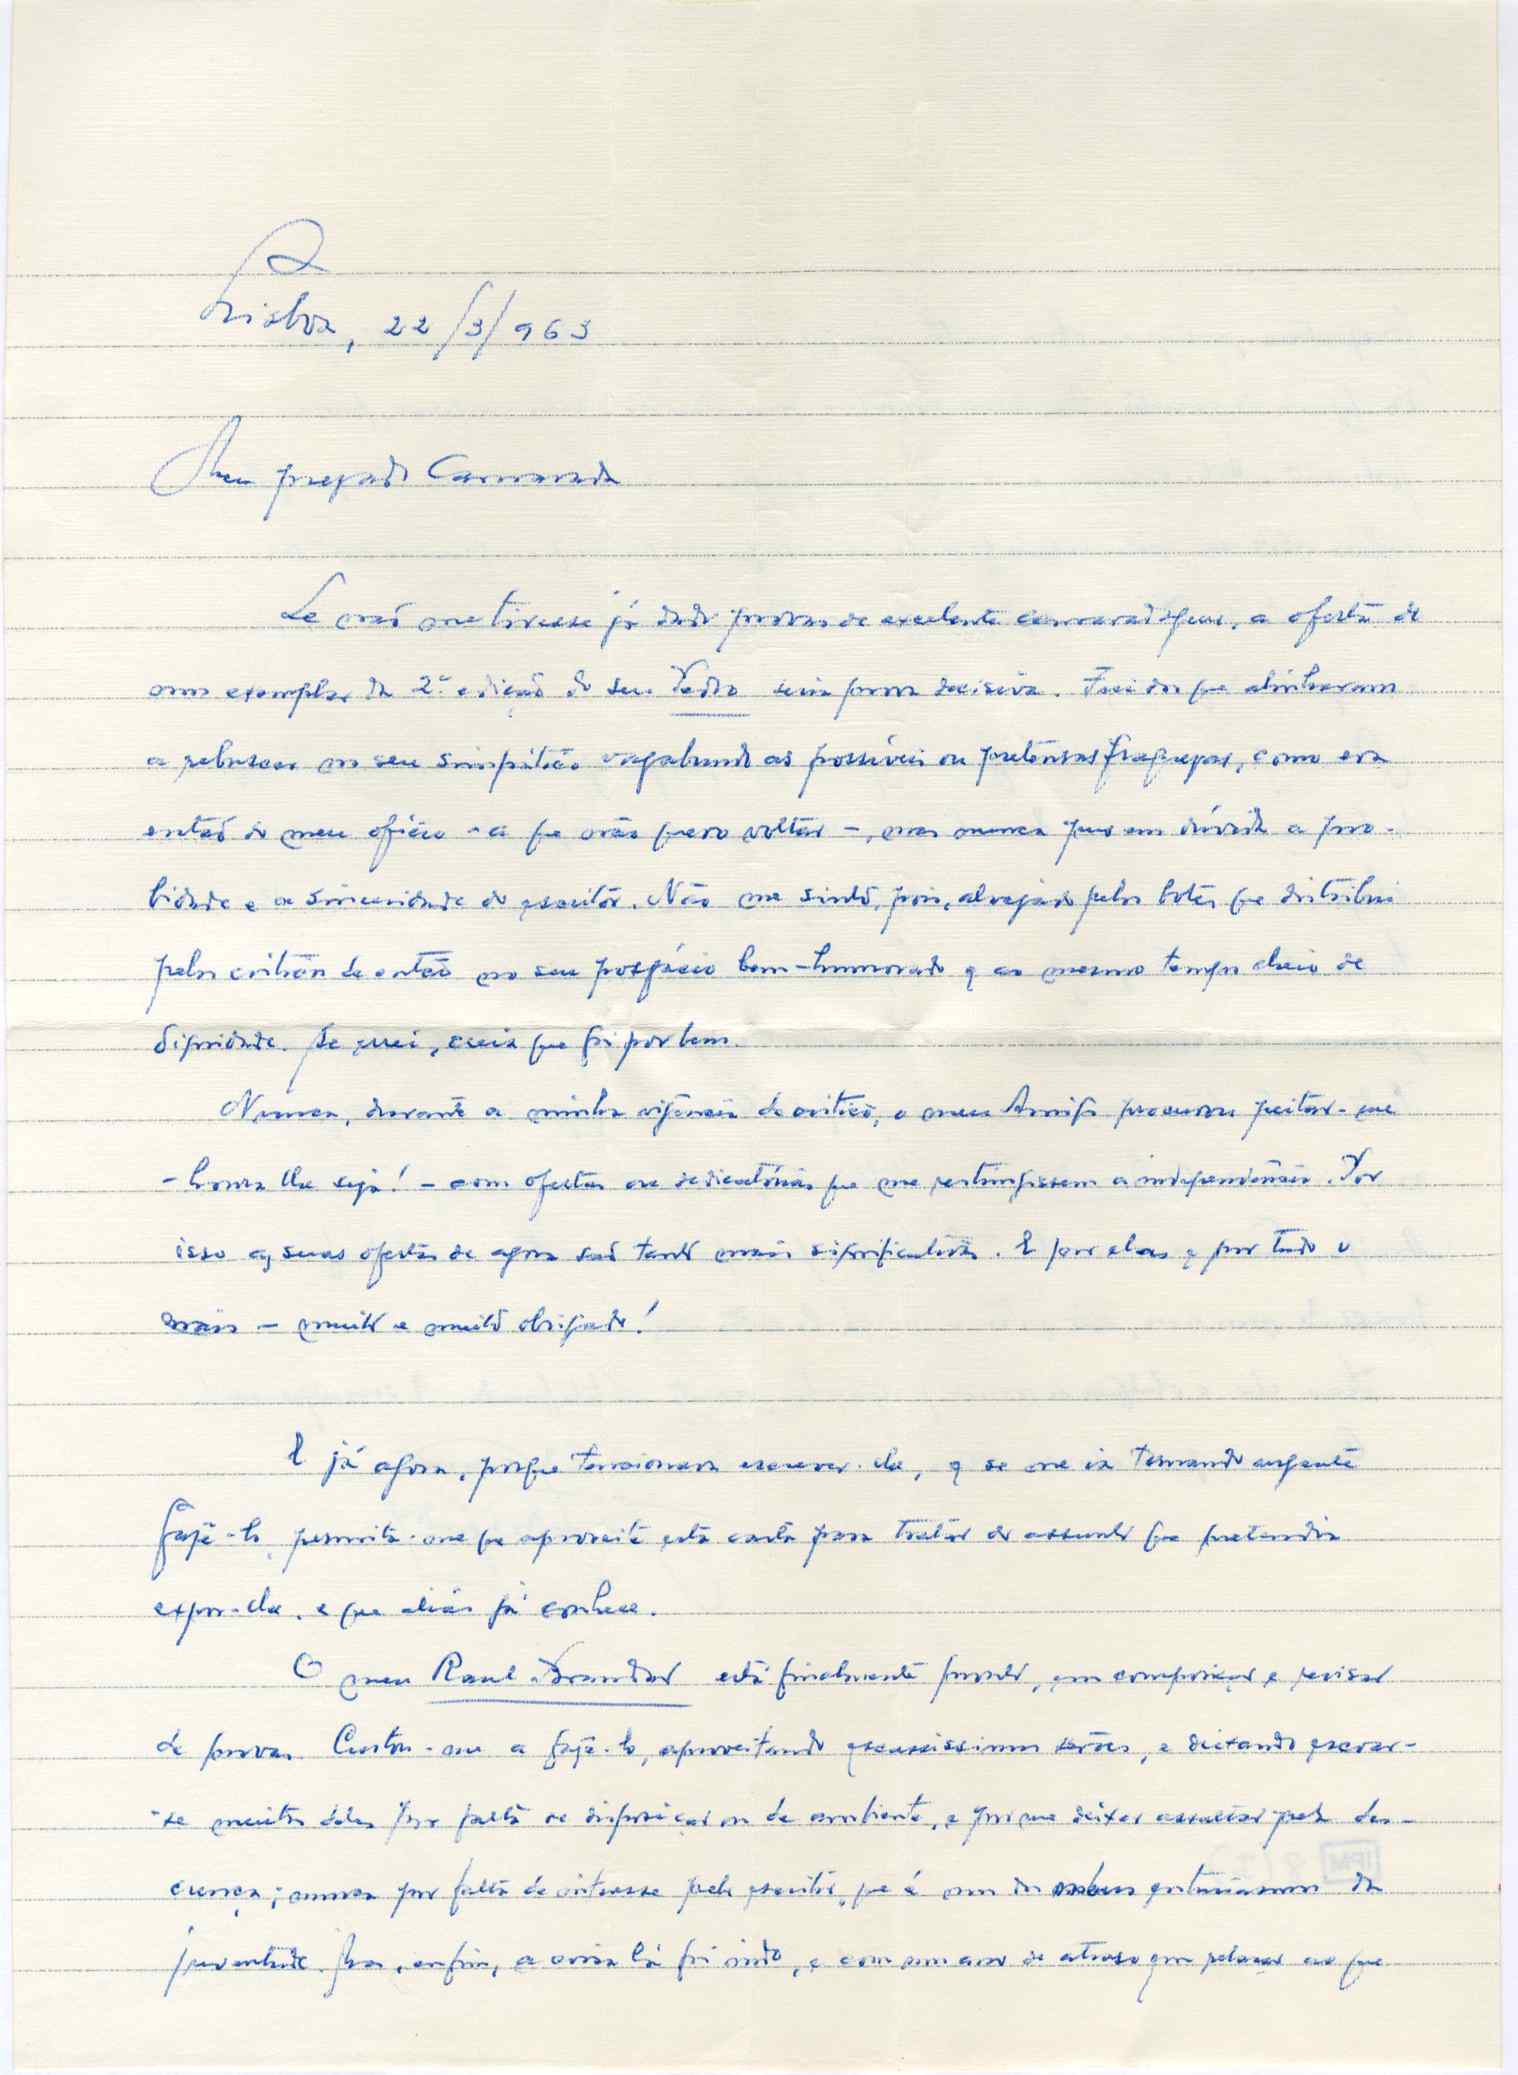 Lisboa, 22/3/963
Meu prezado Camarada
Se não me tivesse já dado provas de excelente camaradagem, a oferta de
um exemplar da 2.ª edição do seu Pedro seria prova decisiva. Fui dos que alinharam
a rebuscar no seu simpático vagabundo as possíveis ou pretensas fraquezas, como era
então do meu ofício – a que não quero voltar –, mas nunca pus em dúvida a pro-
bidade e a sinceridade do escritor. Não me sinto, pois, alvejado pelos botes que distribui
pelos críticos de então no seu posfácio bem-humorado e ao mesmo tempo cheio de
dignidade. Se errei, creia que foi por bem.
Nunca, durante a minha vigência de crítico, o meu Amigo procurou peitar-me
– honra lhe seja! – com ofertas ou dedicatórias que me restringissem a independência. Por
isso as suas ofertas de agora são tanto mais significativas. E por elas e por tudo o
mais – muito e muito obrigado!
E já agora, porque tencionava escrever-lhe, e se me ia tornando urgente
fazê-lo, permita-me que aproveite esta carta para tratar do assunto que pretendia
expor-lhe, e que aliás já conhece.
O meu Raul Brandão está finalmente pronto, em composição e revisão
de provas. Custou-me a fazê-lo, aproveitando escassíssimos serões, e deixando escoar-
-se muitos deles por falta de disposição ou de ambiente, e por me deixar assaltar pela des-
crença; nunca por falta de interesse pelo escritor, que é um dos meus entusiasmos da
juventude. Mas, enfim, a coisa lá foi indo, e com um ano de atraso em relação ao que